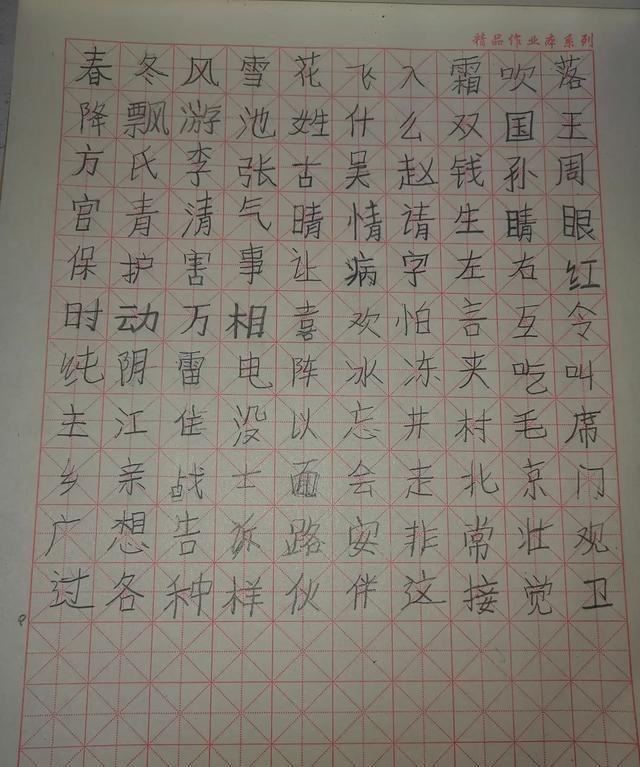 精品作业本系列
春冬风雪花飞入霜吹落
降飘游池姓什么双国王
方氏李张古吴赵钱孙周
宫青清气晴情请生睛眼
保护害事让病字左右红
时动万相喜欢怕言互令
纯阴雷电阵冰冻夹吃叫
主江住没以忘井村毛席
乡亲战士面会走北京门
广想告诉路安非常壮观
过各种样伙伴这接觉卫